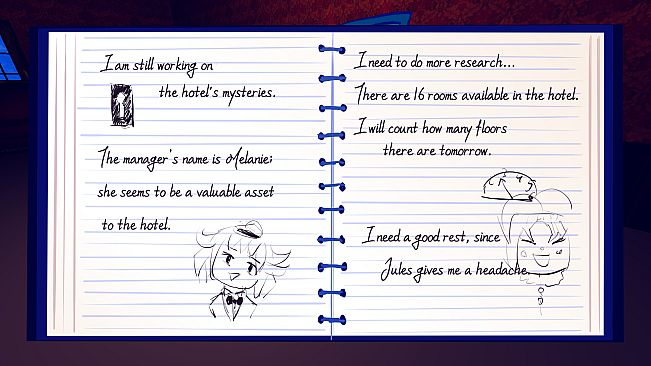 I am still working on
the hotel's mysteries.
The manager's name is Melanie;
she seems to be a valuable asset
to the hotel.
I need to do more research...
There are 16 rooms available in the hotel.
I will count how many floors
there are tomorrow.
I need a good rest, since
Jules gives me a headache.